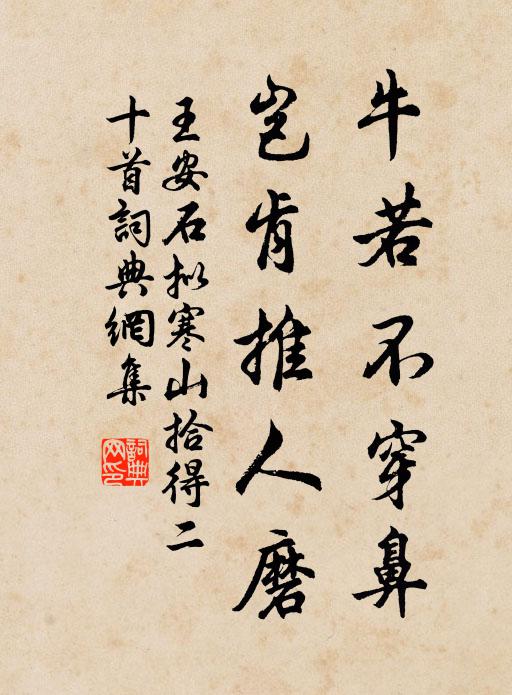 牛若不穿鼻
岂肯推人磨
王安石拟寒山拾得二
十首詞典網集
詞典
网印